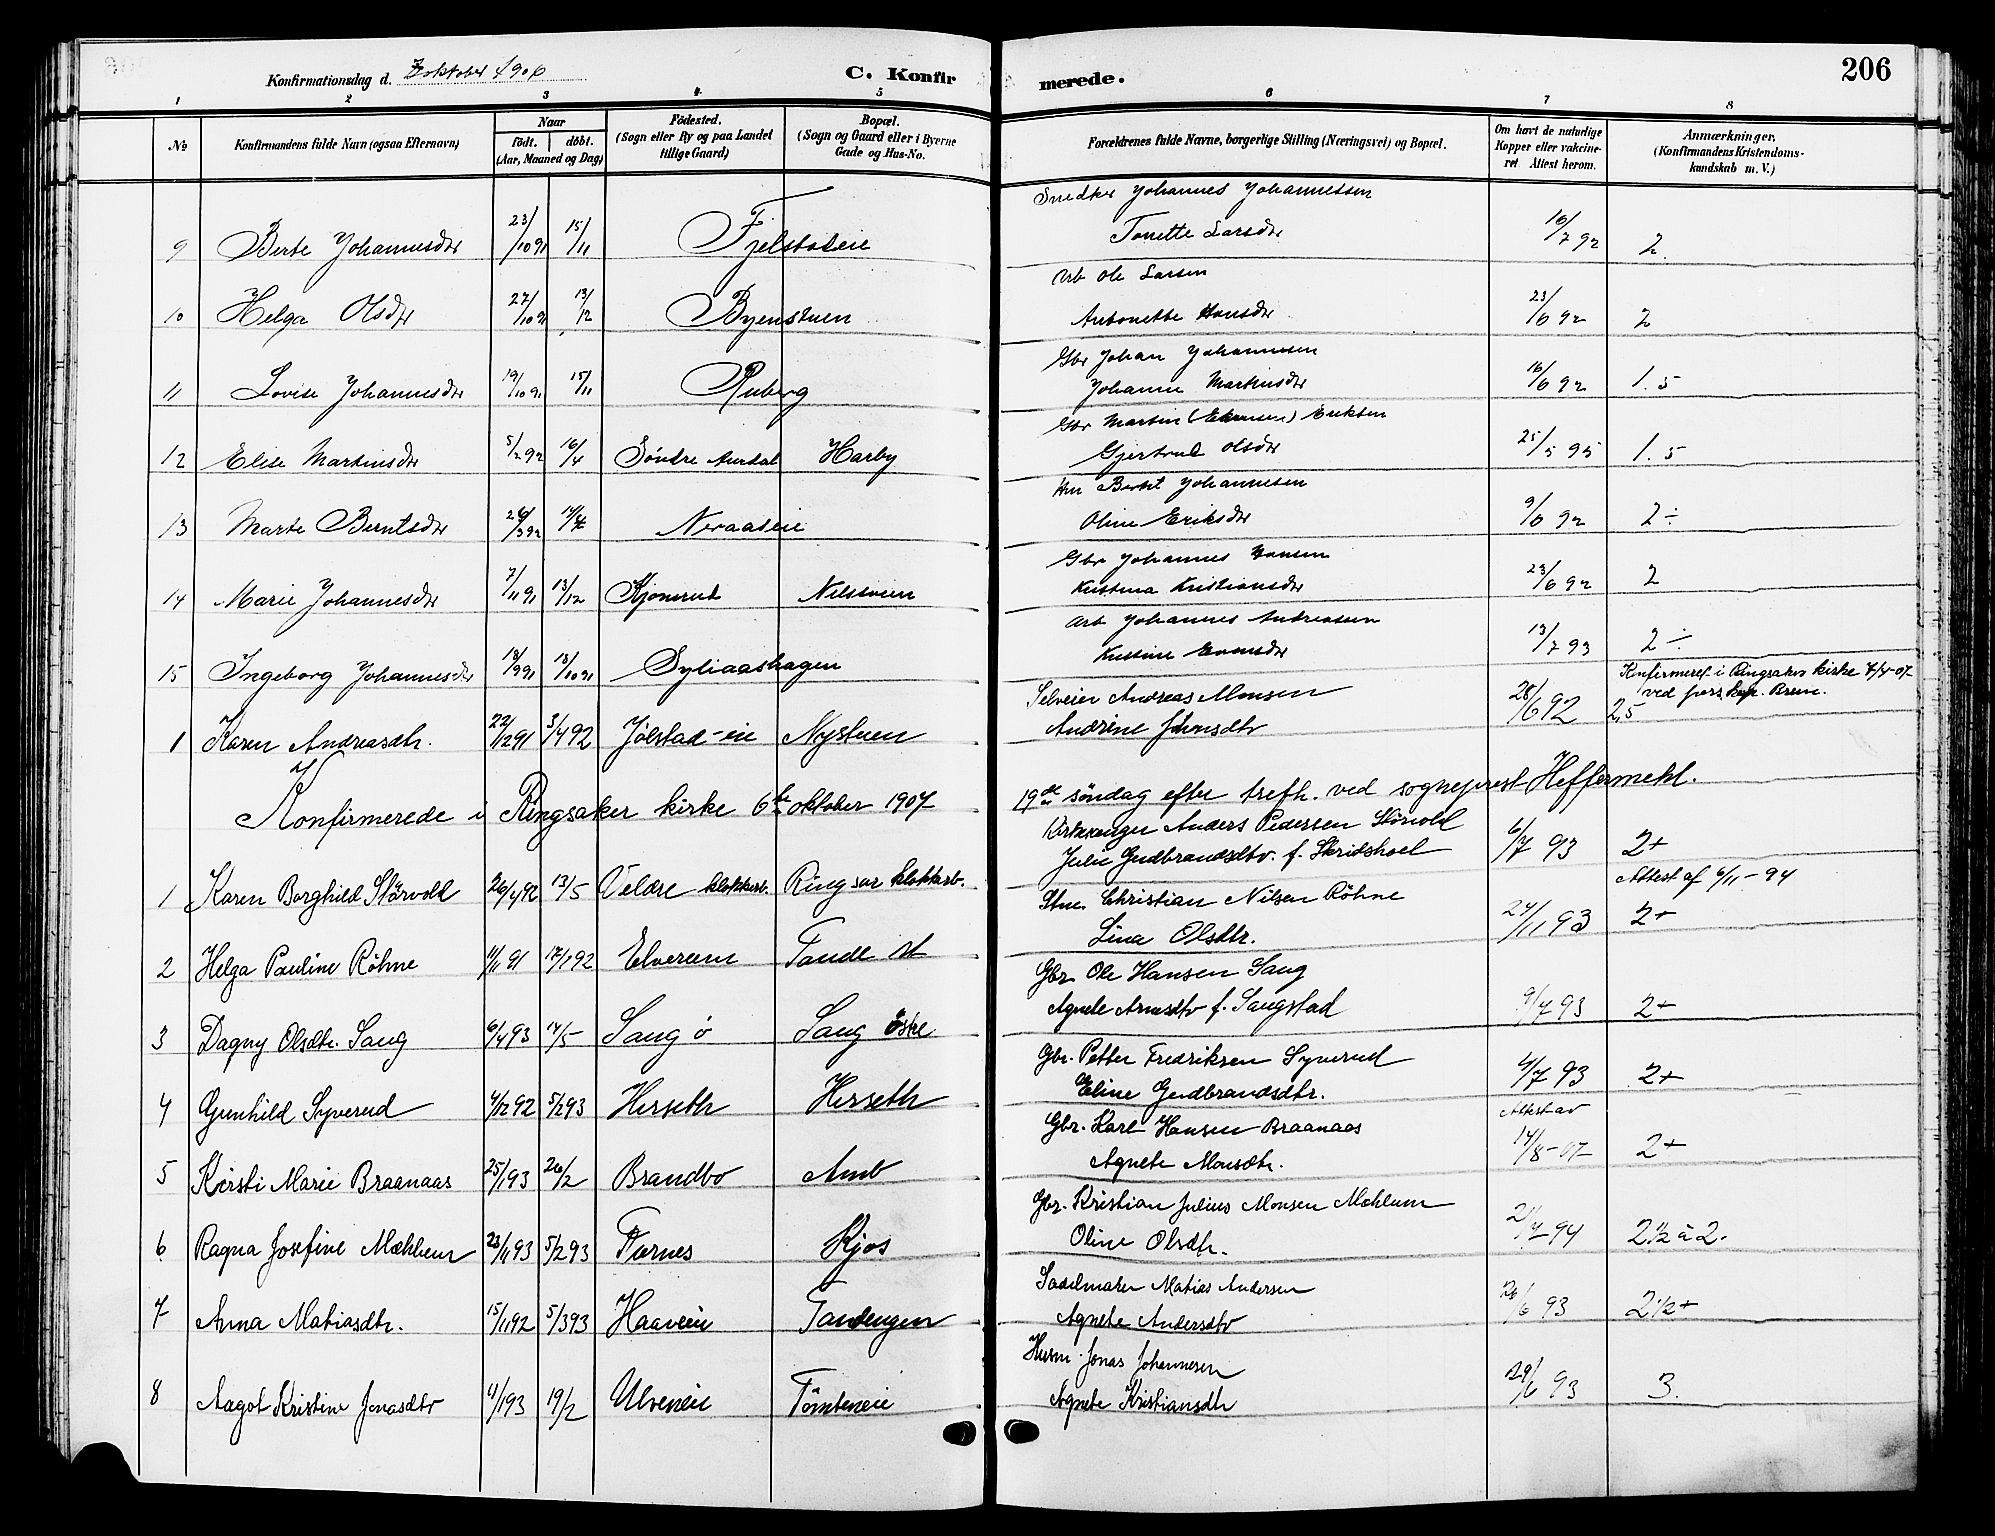 206
Konfirmationsdag d. 7 oktober 1906 C. Konfirmerede.
1 2 3 4 5 6 7 8
№ Konfirmandens fulde Navn (ogsaa Efternavn) Naar født. døbt. (Aar, Maaned og Dag) Födested. (Sogn eller By og paa Landet tillige Gaard) Bopæl. (Sogn og Gaard eller i Byerne Gade og Hus-No. Forældrenes fulde Navne, borgerlige Stilling (Næringsvei) og Bopæl. Om havt de naturlige Kopper eller vakcineret Attest herom. Anmærkninger. (Konfirmandens Kristendomskundskab m. V.)
Snedker Johannes Johannessen
9 Berte Johannesdtr 23/10 91 15/11 Fjelstadeie Tonette Larsdtr 16/7 92 2.
Arb Ole Larsen
10 Helga Olsdtr 27/10 91 13/12 Byenstuen Antonette Hansdtr 23/6 92 2
Gbr Johan Johannesen
11 Lovise Johannesdtr 19/10 91 15/11 Ruberg Johanne Martinsdtr 16/6 92 1.5
Gbr Martin Eriksen
12 Elise Martinsdtr 5/2 92 16/4 Søndre Aurdal Harby Gjertrud Olsdtr 25/5 95 1.5
Hm Bernt Johannesen
13 Marte Berntsdtr 24/3 92 14/4 Neraaseie Oline Eriksdtr 9/6 92 2÷
Gbr Johannes Hansen
14 Marie Johannesdtr 7/11 91 13/12 Kjonerud Nilsveien Kristina Kristiansdtr 23/6 92 2
Arb Johannes Andreasen
15 Ingeborg Johannesdtr 18/9 91 18/10 91 Syliaashagen Kristine Evensdtr 13/7 93 2÷
Konfirmeret i Ringsaker kirke 7/4-07 ved pers. kap. Bruun.
Selveier Andreas Monsen
1 Karen Andreasdtr. 22/12 91 3/4 92 Jølstad-eie Nystuen Andrine Johnsdtr 28/6 92 2,5
Konfirmerede i Ringsaker kirke 6te oktober 1907 19de søndag efter trefh. ved sogneprest Heffermehl.
Kirkesanger Anders Pedersen Störvold
1 Karen Borghild Störvold 26/4 92 13/5 Veldre klokkerb. Ringsar klokkerb. Julie Gudbrandsdtr. f. Skridshoel 6/7 93 2+
Attest af 6/11-94
Stne. Christian Nilsen Röhne
2 Helga Pauline Röhne 11/11 91 17/1 92 Elverum Tande st Lina Olsdtr. 24/11 93 2+
Gbr Ole Hansen Saug
3 Dagny Olsdtr. Saug 6/4 93 14/5 Saug ö Saug östre Agnete Arnesdtr f. Saugstad 9/7 93 2+
Gbr. Petter Fredriksen Syverud
4 Gunhild Syverud 4/12 92 5/2 93 Herseth Herseth Eline Gudbrandsdtr. 4/7 93 2+
Gbr. Karl Hansen Braanaas Attest av
5 Kirsti Marie Braanaas 25/1 93 26/2 Brandbo Amb Agnete Monsdtr. 14/8-07 2+
Gbr. Kristian Julius Monsen Mæhlum
6 Ragna Josefine Mæhlum 23/11 93 5/2 93 Furnes Kjos Oline Olsdtr. 21/7-94 2½ à 2.
Sadelmaker Matias Andersen
7 Anna Matiasdtr. 15/11 92 5/3 93 Haaveie Tandengen Agnete Andersdtr 26/6 93 2½+
Husm. Jonas Johannesen
8 Aagot Kristine Jonasdtr 11/1 93 19/2 Ulveneie Tömteneie Agnete Kristiansdtr 29/6 93 3.